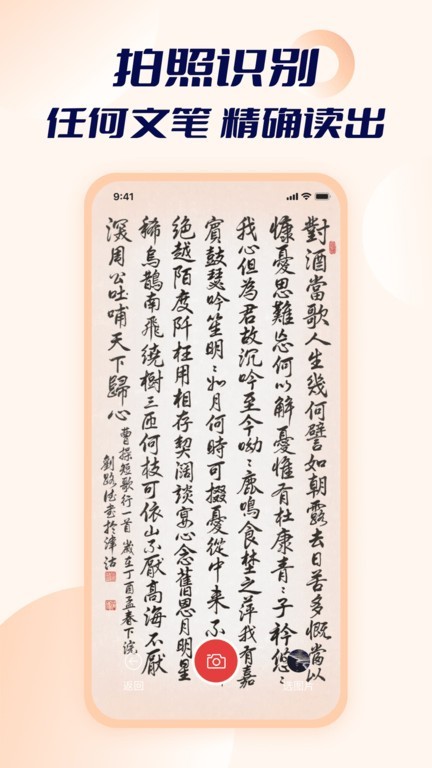 拍照识别
任何文笔 精确读出
9:41
對酒當歌人生幾何譬如朝露去日苦多慨當以
慷憂思難忘何以解憂惟有杜康青〻子衿悠〻
我心但為君故沉吟至今呦〻鹿鳴食埜之萍我有嘉
賓鼓瑟吟笙明〻如月何時可掇憂從中來不
絕越陌度阡枉用相存契闊談宴心念舊恩月明星
稀烏鵲南飛繞樹三匝何枝可依山不厭高海不厭
深周公吐哺天下歸心
曹操短歌行一首 歲在丁酉孟春下浣
劉路德書於津沽
返回